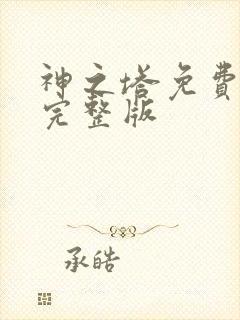 神之塔免費
完整版
承皓